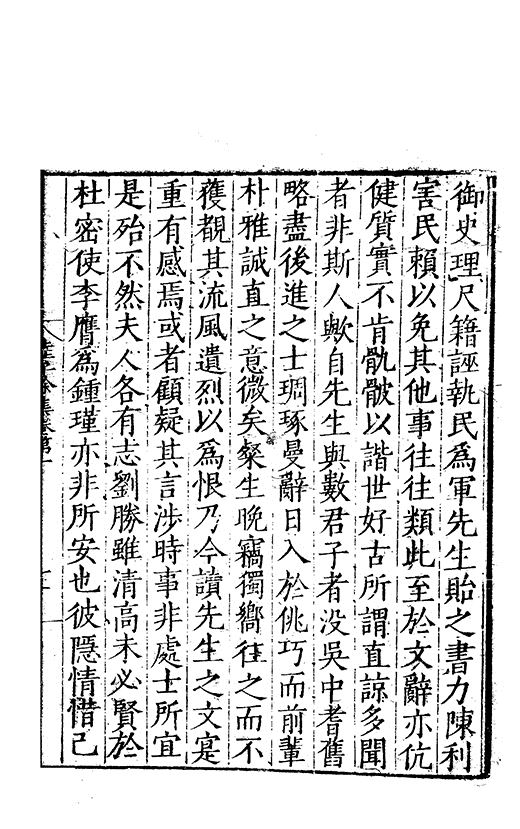 御史理尺籍誣執民為軍先生貽之書力陳利
害民賴以免其他事往往類此至於文辭亦伉
健質實不肯骫骳以諧世好古所謂直諒多聞
者非斯人歟自先生與數君子者没吳中耆舊
略盡後進之士琱琢曼辭日入於佻巧而前輩
朴雅誠直之意微矣粲生晚竊獨嚮往之而不
獲覩其流風遺烈以為恨乃今讀先生之文寔
重有感焉或者顧疑其言涉時事非處士所宜
是殆不然夫人各有志劉勝雖清高未必賢於
杜密使李膺為鍾瑾亦非所安也彼隱情惜己